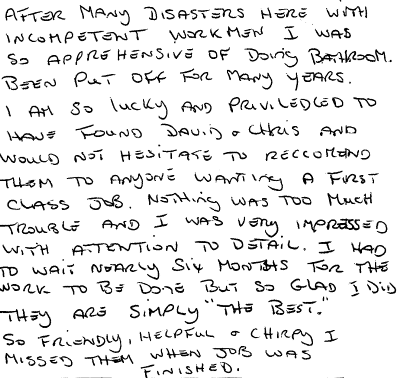 AFTER MANY DISASTERS HERE WITH
INCOMPETENT WORKMEN I WAS
SO APPREHENSIVE OF DOING BATHROOM.
BEEN PUT OFF FOR MANY YEARS.
I AM SO LUCKY AND PRIVILEDGED TO
HAVE FOUND DAVID & CHRIS AND
WOULD NOT HESITATE TO RECCOMEND
THEM TO ANYONE WANTING A FIRST
CLASS JOB. NOTHING WAS TOO MUCH
TROUBLE AND I WAS VERY IMPRESSED
WITH ATTENTION TO DETAIL. I HAD
TO WAIT NEARLY SIX MONTHS FOR THE
WORK TO BE DONE BUT SO GLAD I DID
THEY ARE SIMPLY "THE BEST."
SO FRIENDLY, HELPFUL & CHIRPY I
MISSED THEM WHEN JOB WAS
FINISHED.